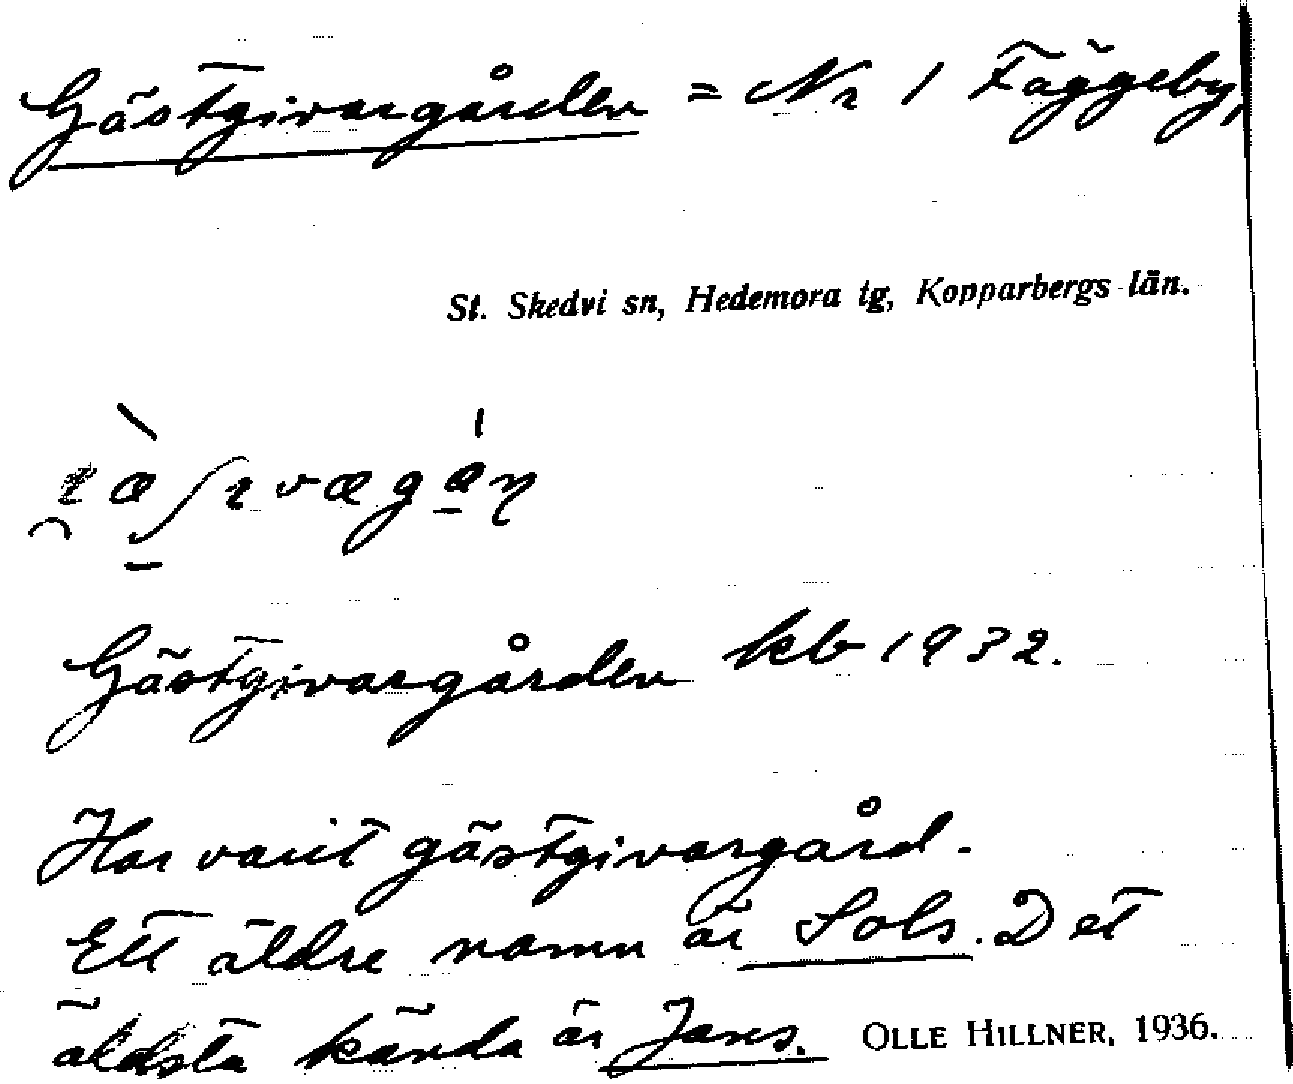 Gästgivargården = Nr 1 Fäggeby,
St. Skedvi sn, Hedemora tg, Kopparbergs län.
Gästgivargården kb 1932.
Har varit gästgivargård.
Ett äldre namn är Sols. Det
äldsta kända är Jans. OLLE HILLNER, 1936.